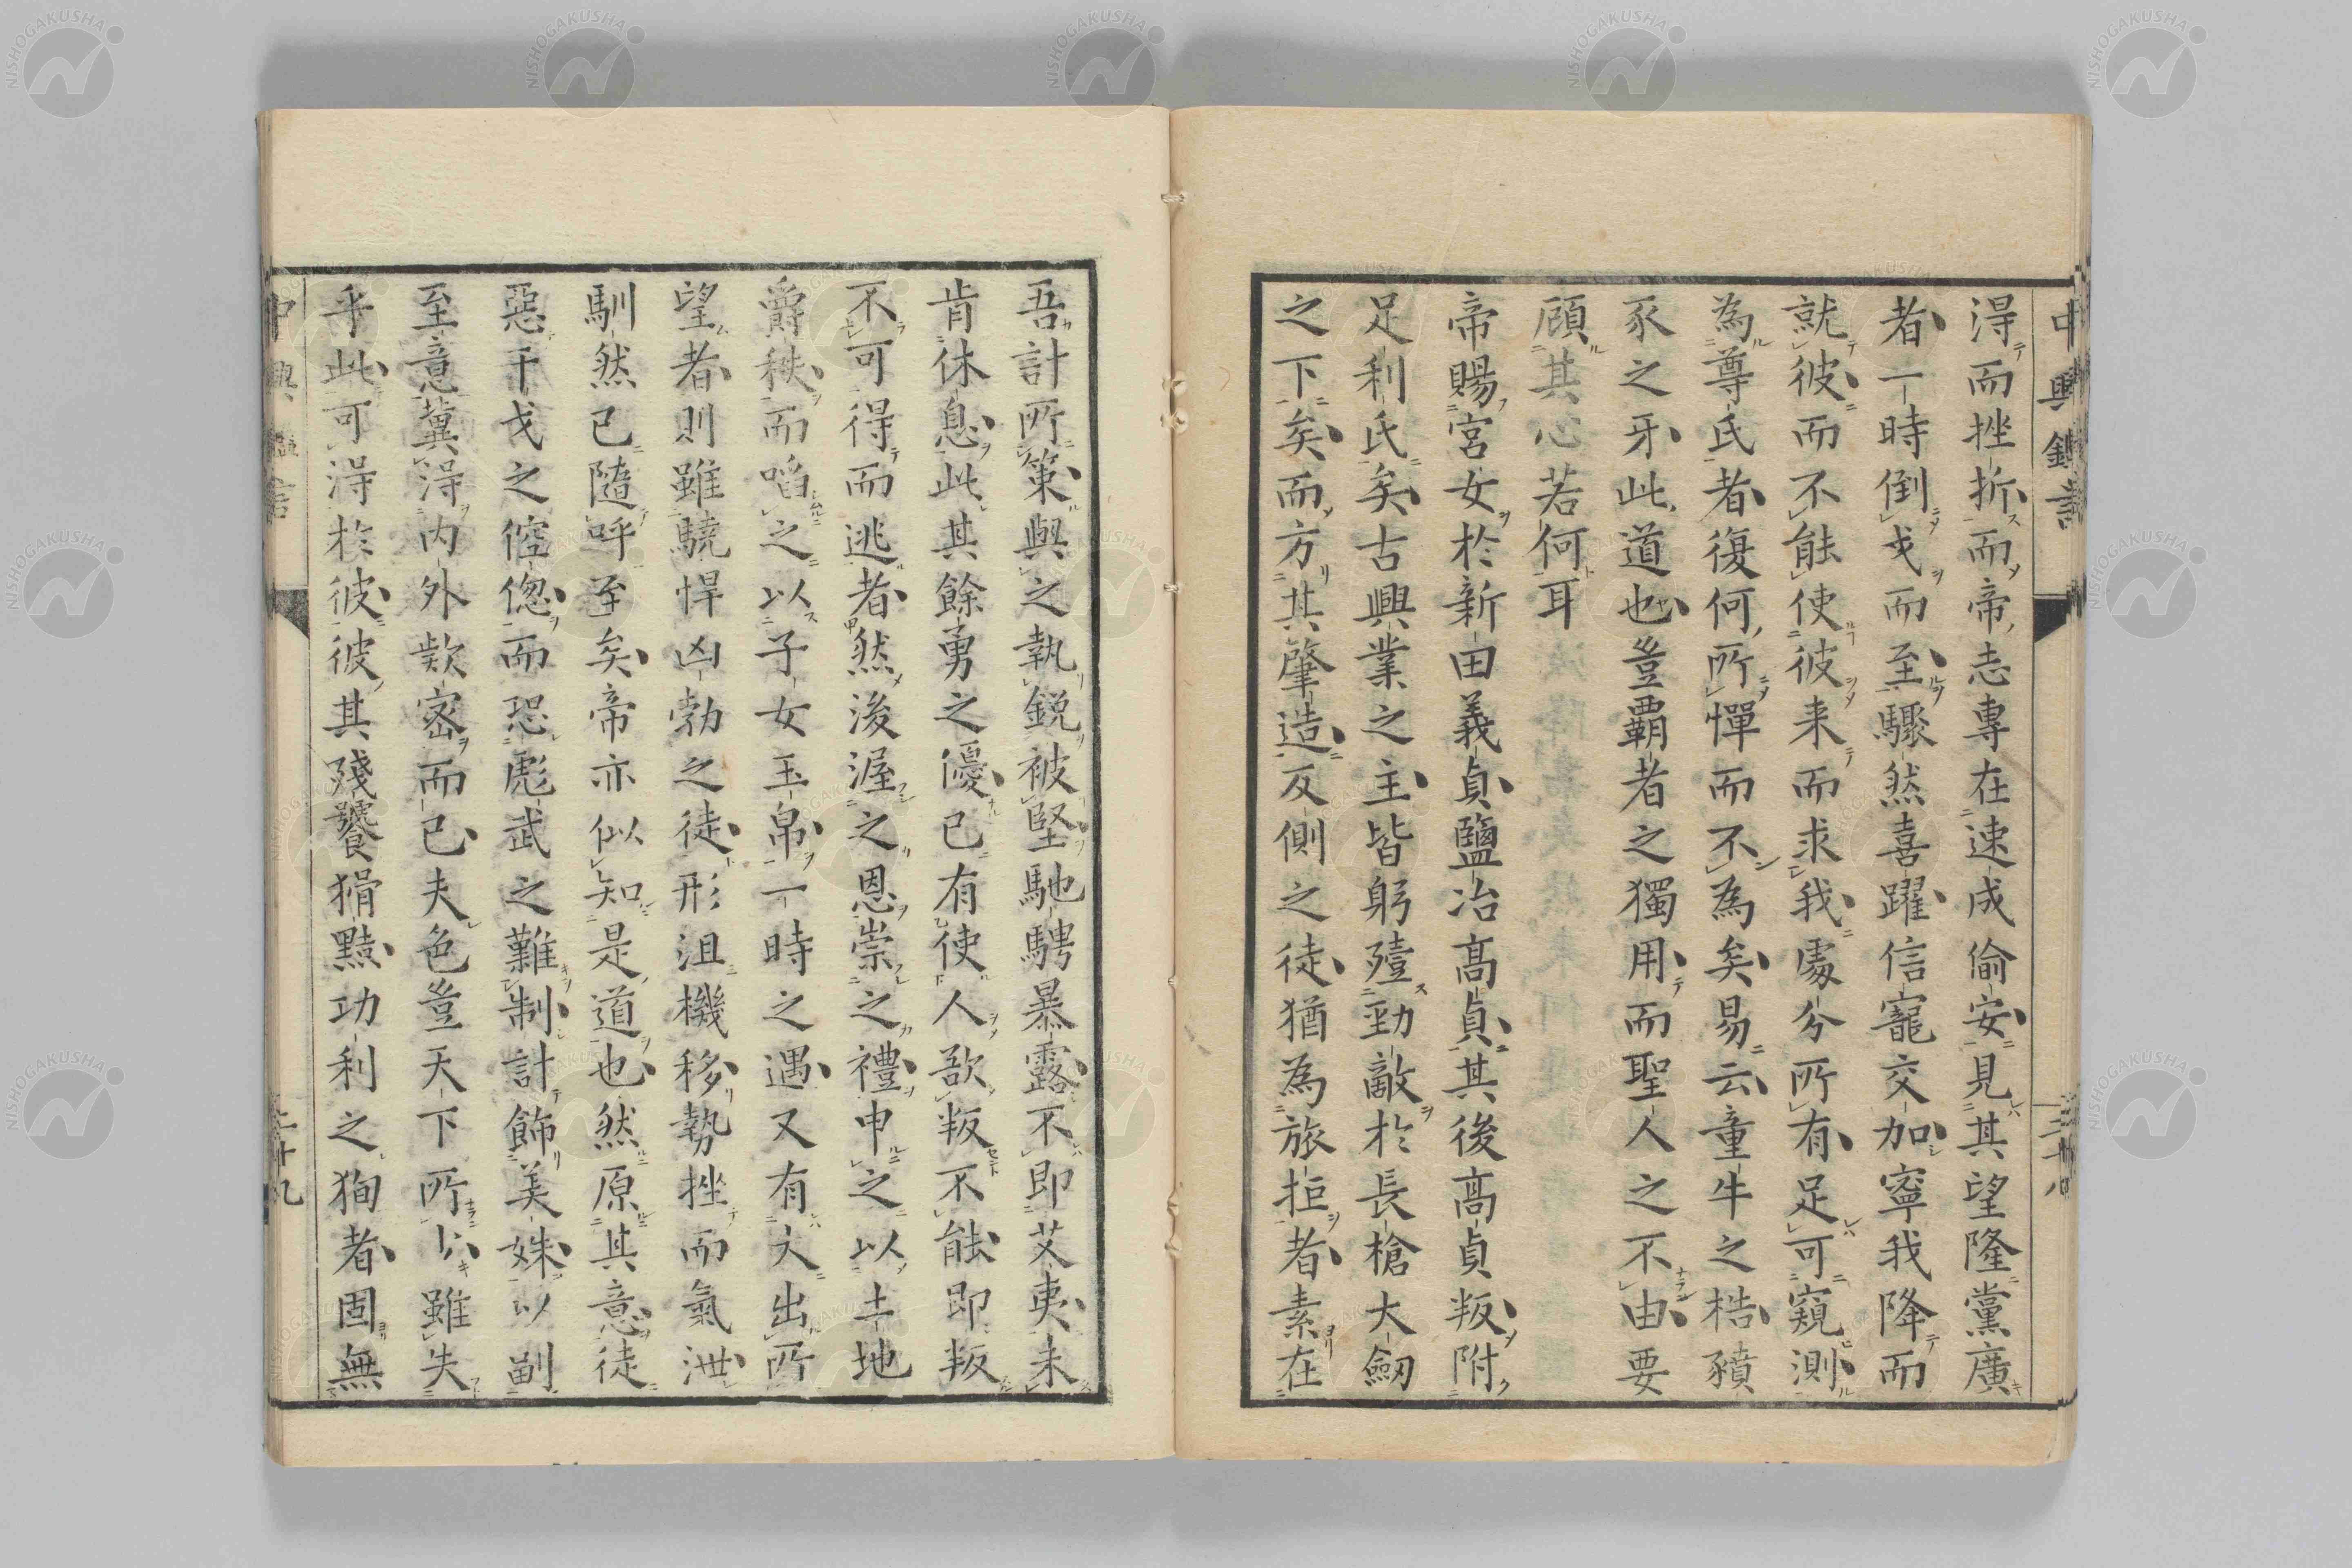 得而挫折而帝志專在速成偷安見其望隆黨廣
者一時倒戈而至驟然喜躍信寵交加寧我降而
就彼而不能使彼来而求我處分所有足可窺測
為尊氏者復何所憚而不為矣易云童牛之梏豶
豕之牙此道也豈覇者之獨用而聖人之不由要
顧其心若何耳
帝賜宮女於新田義貞鹽冶髙貞其後髙貞叛附
足利氏矣古興業之主皆躬殪勁敵於長槍大劒
之下矣而方其肇造反側之徒猶為旅拒者素在
吾計所策與之執鋭被堅馳騁暴露不即芟夷未
肯休息此其餘勇之優已有使人欲叛不能即叛
不可得而逃者然後渥之恩崇之禮申之以土地
爵秩而啗之以子女玉帛一時之遇又有大出所
望者則雖驍悍凶勃之徒形沮機移勢挫而氣泄
馴然已隨呼至矣帝亦似知是道也然原其意徒
惡干戈之倥偬而恐彪武之難制計飾美姝以副
至意冀得内外歀宻而已夫色豈天下所公雖失
乎此可得於彼彼其殘饕狷黠功利之狥者固無
中興鑑言
二十八
二十九
NISHOGAKUSHA